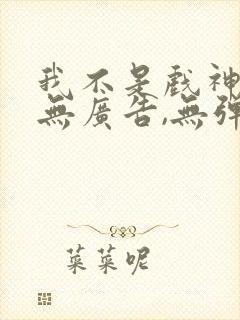 我不是戲神
無廣告,無彈
菜菜呢